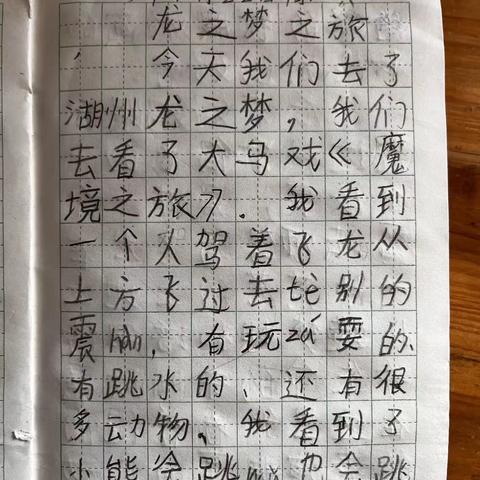 龙之梦之旅
今天我们去了
湖州龙之梦，我们
去看了大马戏《魔
境之旅》．我看到
一个人驾着飞龙从
上方飞过去tè别的
震hàn，有玩zá耍的、
有跳水的、还有很
多动物、我看到了
小熊会跳wǔ也会跳